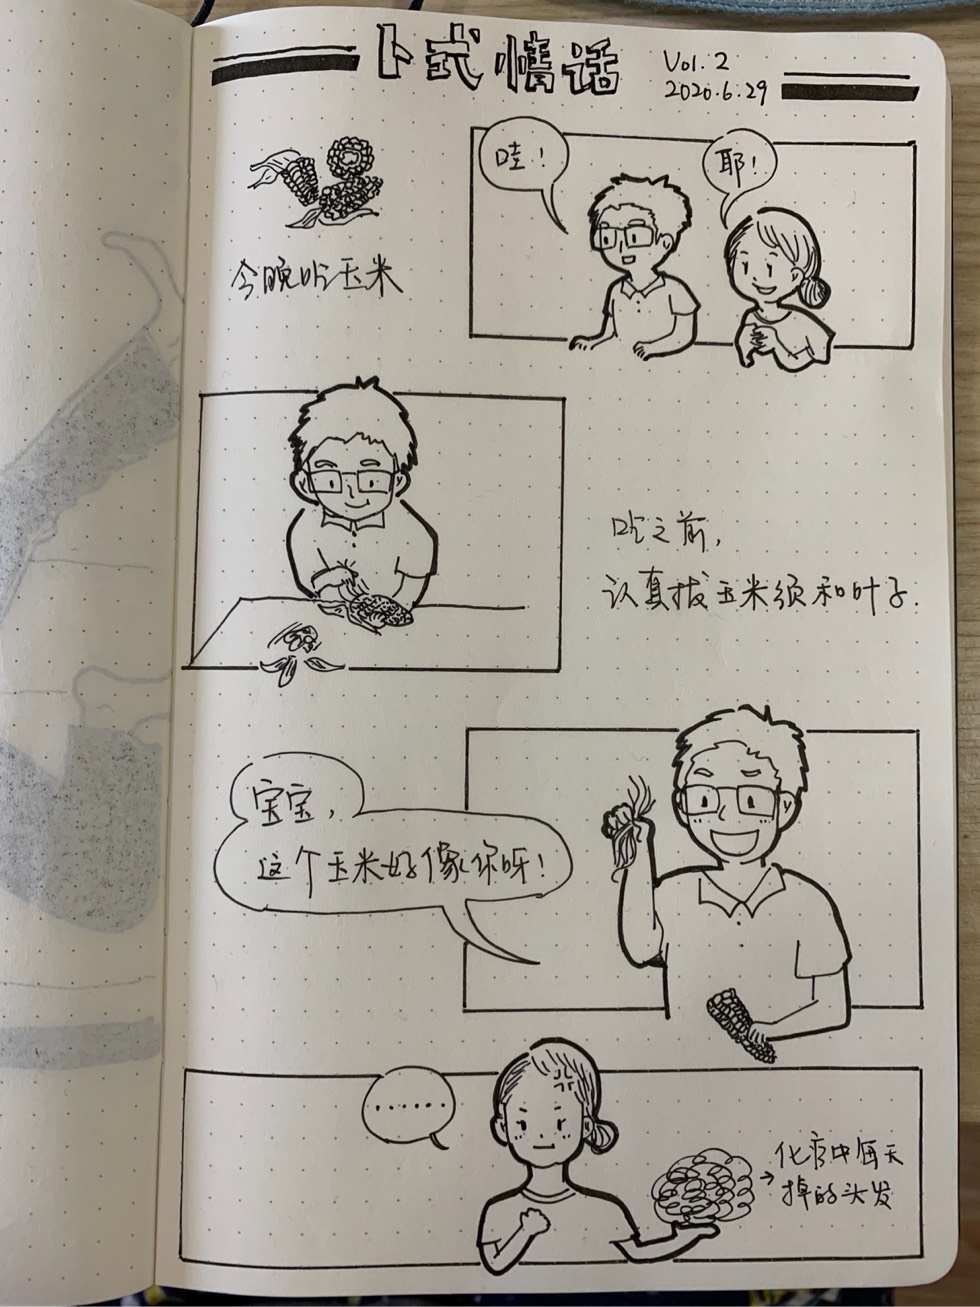 卜式情话
Vol.2
2020.6.29
哇！
耶！
今晚吃玉米
吃之前，
认真拔玉米须和叶子.
宝宝，
这个玉米好像你呀！
......
化疗中每天
掉的头发